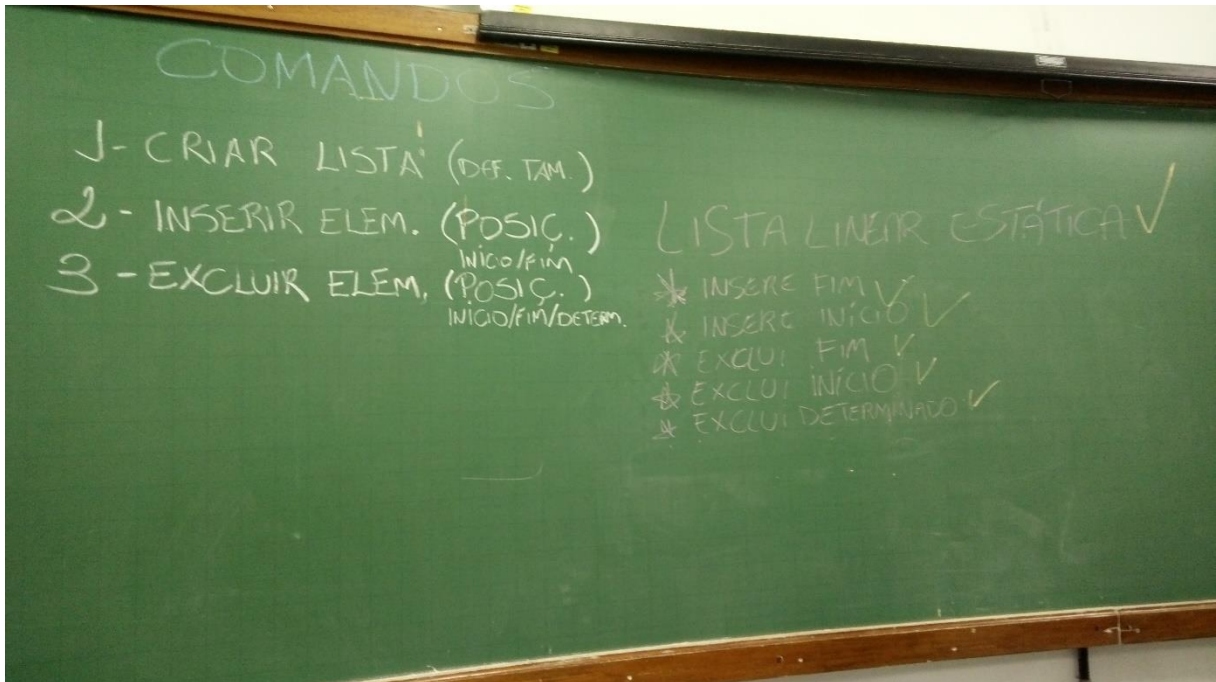 COMANDOS
1- CRIAR LISTA (DEF. TAM.)
2 - INSERIR ELEM. (POSIÇ.)
INÍCIO/FIM
3 - EXCLUIR ELEM. (POSIÇ.)
INÍCIO/FIM/DETERM.
LISTA LINEAR ESTÁTICA ✓
* INSERE FIM ✓
* INSERE INÍCIO ✓
* EXCLUI FIM ✓
* EXCLUI INÍCIO ✓
* EXCLUI DETERMINADO ✓